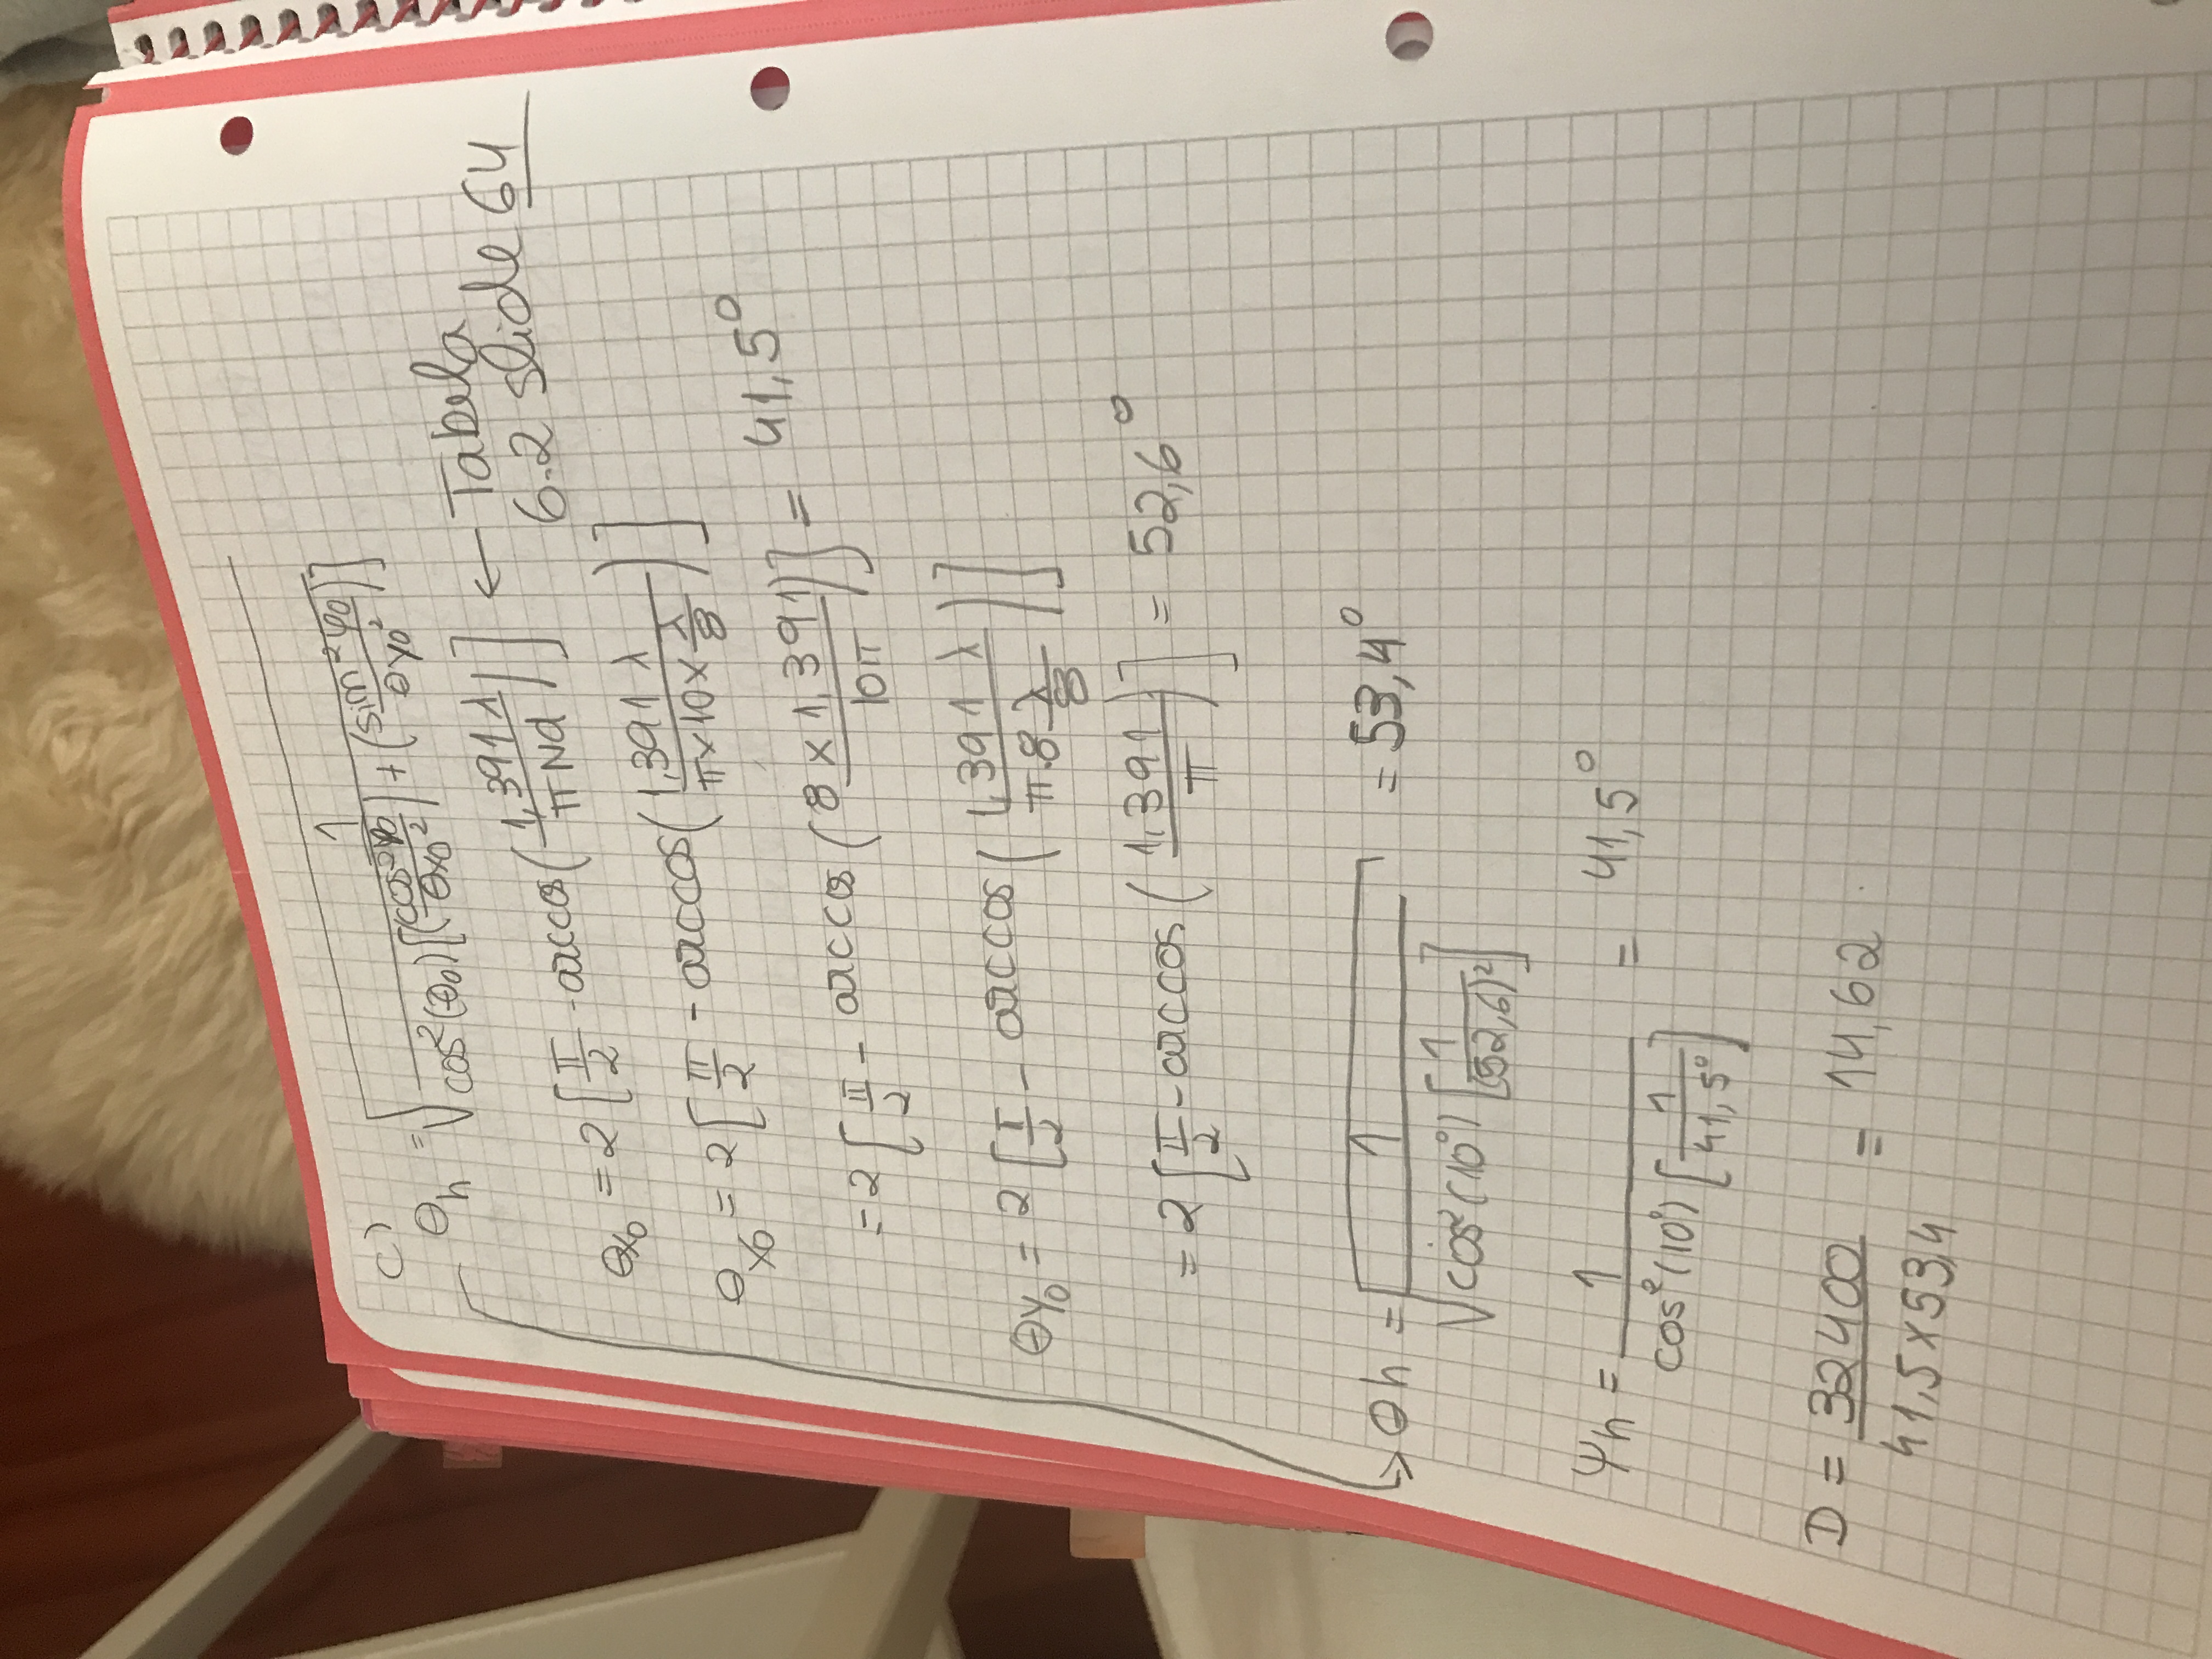 c)
θh = √ 1 / cos²(θ0) [(cos²φ0 / θx0²) + (sin²φ0 / θy0²)]
θx0 = 2 [π/2 - arccos(1,391 λ / πNd)] ← Tabela
6.2 slide 64
θx0 = 2 [π/2 - arccos(1,391 λ / π×10×λ/8)]
= 2 [π/2 - arccos(8 × 1,391 / 10π)] = 41,5°
θy0 = 2 [π/2 - arccos(1,391 λ / π.8 λ/8)]
= 2 [π/2 - arccos(1,391 / π)] = 52,6°
→ θh = √ 1 / cos²(10°) [1 / (52,6)²] = 53,4°
Ψh = 1 / cos²(10°) [1 / 41,5°] = 41,5°
D = 32400 / 41,5×53,4 = 14,62